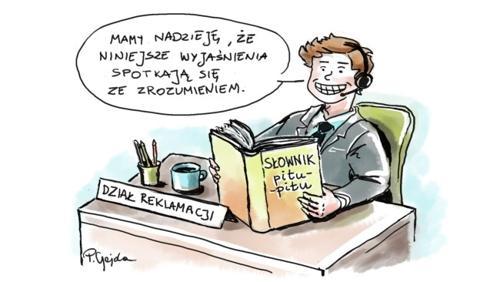 MAMY NADZIEJĘ, ŻE
NINIEJSZE WYJAŚNIENIA
SPOTKAJĄ SIĘ
ZE ZROZUMIENIEM.
SŁOWNIK
pitu-
-pitu
DZIAŁ REKLAMACJI
P. Gajda